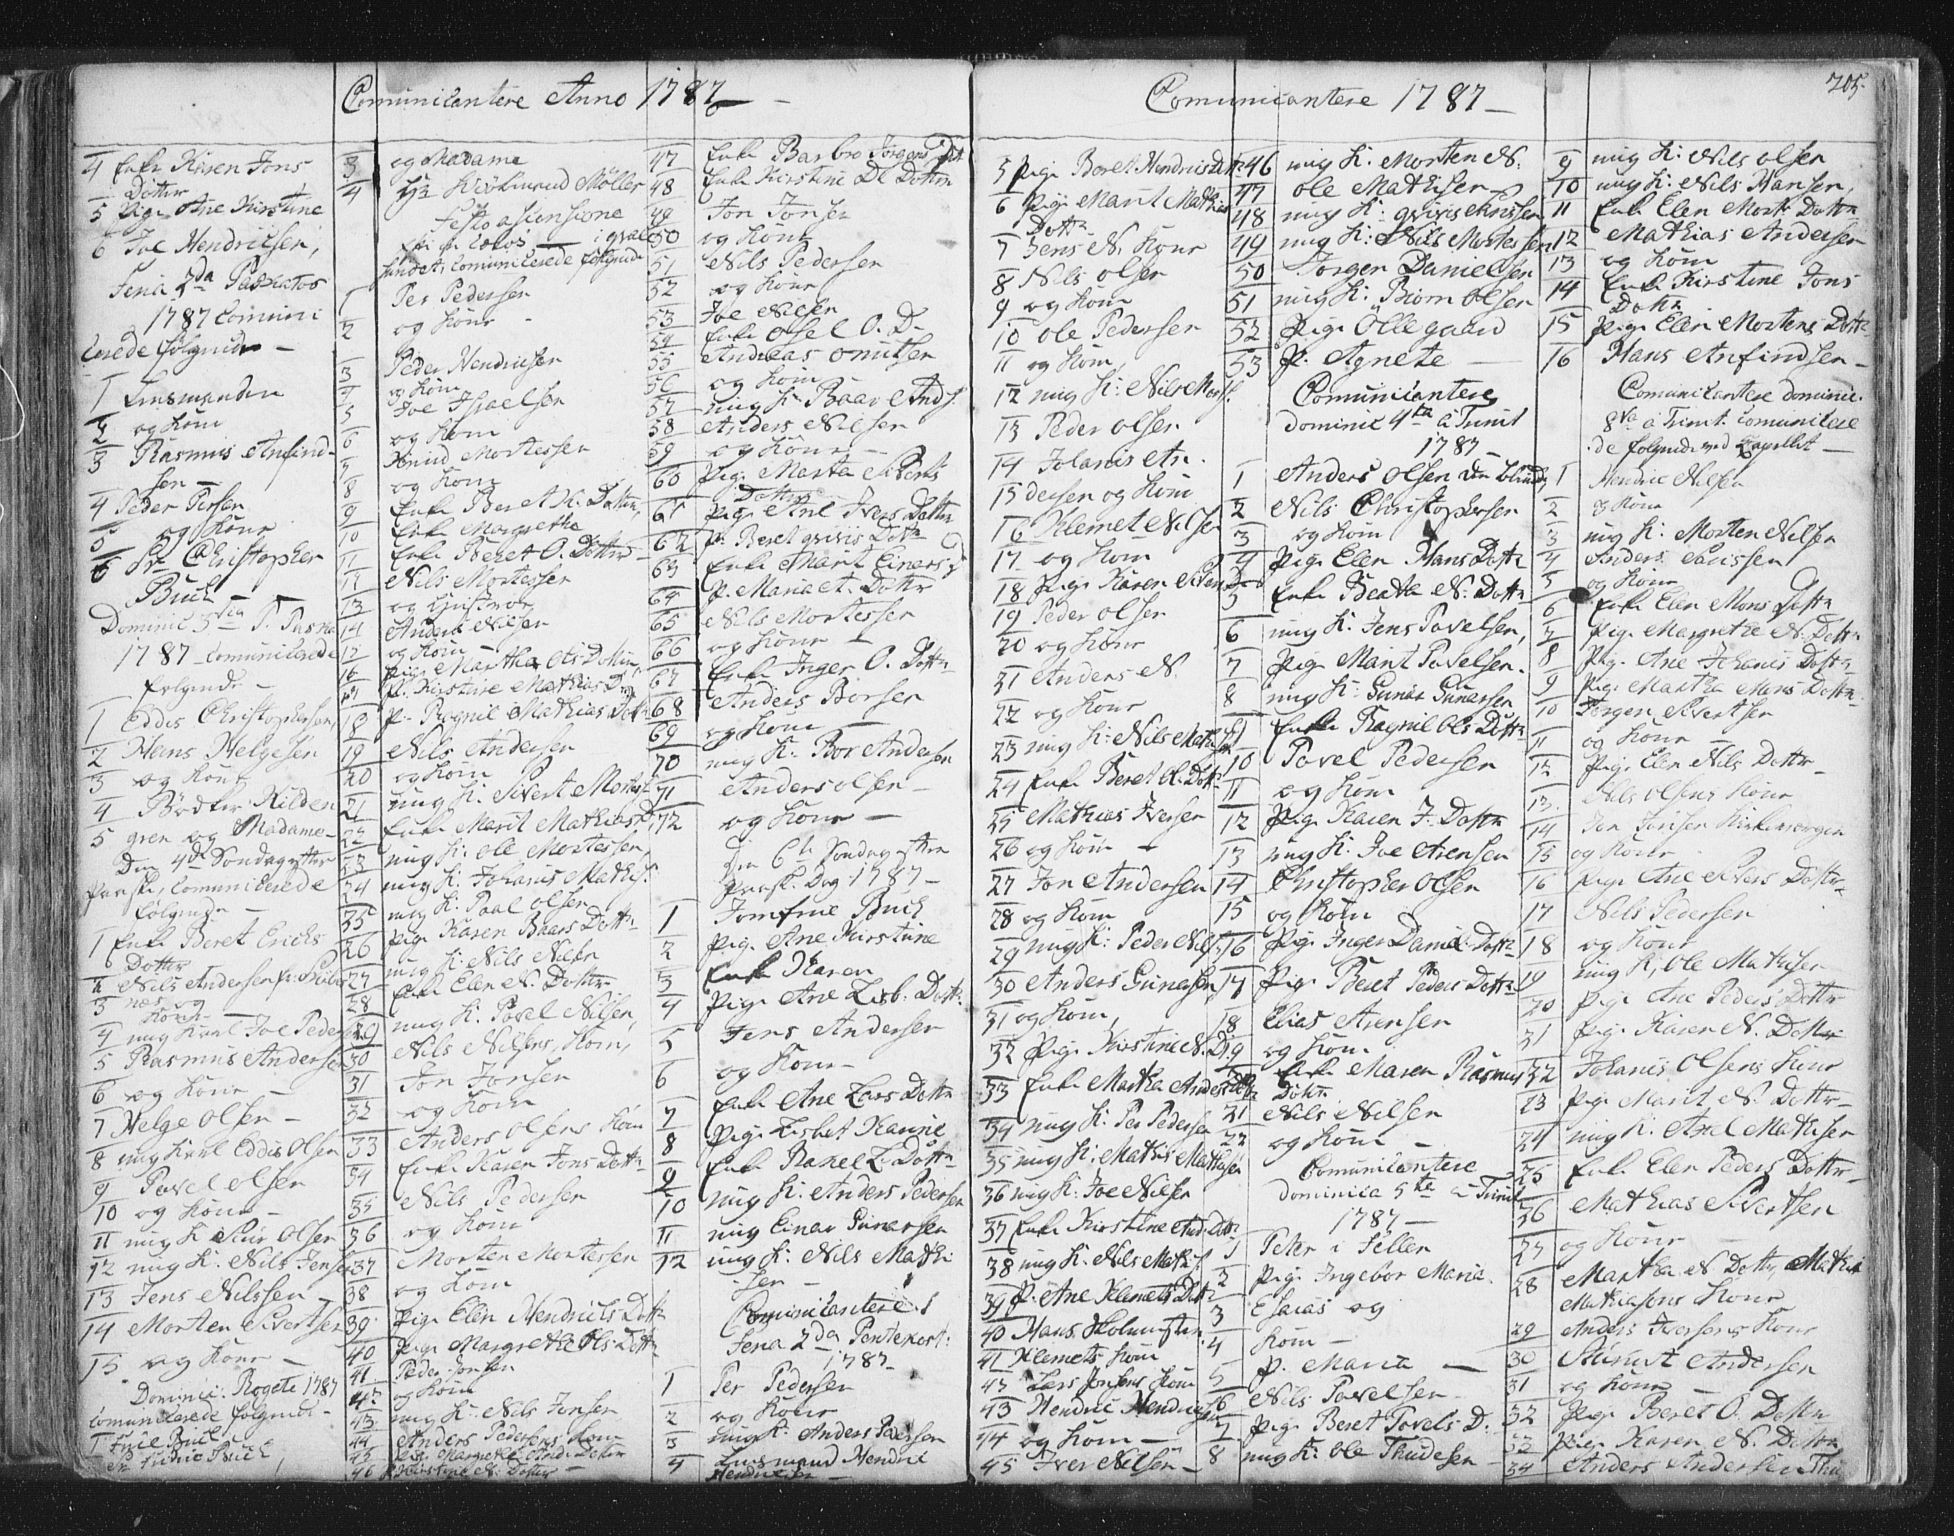 Comunicantere Anno 1787
4 Enke Karen Jons
Dotter
5 Pige Ane Kirstine
6 Joe Hendricsen,
Feria 2da Paschatos
1787 Comuni
cerede følgende
1 Lensmanden
2 og Kone
3 Rasmus Anfind-
sen
4 Peder Persen
5 og Kone
6 Sr Christopher
Buch
Dominic 3tia P. Pasca
1787 Comunicerede
følgende
1 Eddis Christophersen,
2 Hans Helgesen
3 og Kone
4 Bødker Kilden
5 gren og Madame
Den 4de Søndag efter
Paaske, Comunicerede
følgende
1 Enke Beret Erichs
Dotter
2 Nils Andersen
3 næs og
Kone
4 mig Karl Joe Pedersen
5 Rasmus Andersen
6 og Kone
7 Helge Olsen
8 mig Karl Eddis Olsen
9 Pavel Olsen
10 og Kone
11 mig K. Siur Olsen
12 mig K. Nils Jensen
13 Jens Nilssen
14 Morten Sivertsen
15 og Kone
Dominic: Rogate 1787
Comunicerede følgende
3 og Madame
4 Hr Møller
Festo Ascensione
Comunicerede følgende
1 Per Pedersen
2 og Kone
3 Peder Hendricsen
4 og Kone
5 Joe Israelsen
6 og Kone
7 Knud Mortensen
8 og Kone
9 Enke Beret H. Dotter,
10 Enke Margrethe
11 Enke Beret O. Dotter
12 Nils Mortessen
13 og Hustroe
14 Anders Nilsen
15 og Kone
16 pige Martha Ols Dotter
17 P. Kirstine Mathias D.
18 p. Ragnil Mathias Dotter
19 Nils Andersen
20 og Kone
21 mig K. Sivert Mortes
22 Enke Marit Mathias D.
23 mig K: Ole Mortessen,
24 mig K: Johanes Mathis.
25 mig K: Paal Olsen
26 pige Karen Baars Dotter
27 mig K: Nils Nilsen
28 Enke Elen N. Dotter
29 mig K. Pavel Nilsen,
30 Nils Nilsens Kone,
31 Jon Jonsen
32 og Kone
33 Anders Olsens Kone
34 Enke Karen Jons Dotter
35 Nils Pedersen
36 og Kone
37 Morten Mortessen
38 og Kone
39 pige Elen Hendrichs Dotter
40 pige Margrethe Ols Dotter
41 Peder Jonsen
42 og Kone
43 mig K: Nils Jensen
44 Anders Pedersens Kone
45 pige Margrethe Anders Dotter
46 p. Kirstine N. Dotter
47 Enke Barbro Jørgens Dot
48 Enke Kirstine Dl Dotter
49 Jon Jonsen
50 og Kone
51 Nils Pedersen
52 og Kone
53 Joe Nilsen
54 Enke Osel O. D.
55 Andreas Knutsen
56 og Kone
57 mig K Baar And.
58 Anders Nilsen
59 og Kone
60 Pige Marta Siverts
Dotter
61 pige Ane Ivers Dotter
62 p. Beret Dotter
63 Enke Marit Einers D
64 p. Maria A. Dotter
65 Nils Mortessen
66 og Kone
67 Enke Inger O. Dotter
68 Anders Borsen
69 og Kone
70 mig K. Bor Andersen
71 Anders Olsen
72 og Kone
Den 6te Søndag efter
Paaske Dag 1787
1 Jomfrue Buch
2 pige Ane Kirstine
3 Enke Karen
4 pige Ane Lisb. Dotter
5 Jens Andersen
6 og Kone
7 Enke Ane Lars Dotter
8 pige Lisbet Hanne
9 Enke Rakel L. Dotter
10 mig K. Anders Pedersen
11 mig Einar Gunersen
12 mig K. Nils Mathi
sen
Comunicantere
Feria 2da Pentekost:
1787
1 Per Pedersen
2 og Kone
3 mig K: Anders Paulsen
4 Lensmand Hendric
Hendricsen
Comunicantere 1787
205
5 pige Beret Hendrics Dotter
6 pige Marit Mathias
Dotter
7 Jens N. Kone
8 Nils Olsen
9 og Kone
10 Ole Pedersen
11 og Kone
12 mig K: Nils Mort.
13 Peder Olsen
14 Johanis An.
15 dersen og Kone
16 Klemet Nilsen
17 og Kone
18 pige Karen
19 Peder Olsen
20 og Kone
21 Anders N.
22 og Kone
23 mig K: Nils Mathisen
24 Enke Beret Ol. Dotter
25 Mathias Iversen
26 og Kone
27 Jon Andersen
28 og Kone
29 mig K: Peder Nils.
30 Anders Gunersen
31 og Kone,
32 pige Kirstine N. D.
33 Enke Martha Anders Dotter
34 mig K: Per Pedersen
35 mig K: Mathis Mathisen
36 mig K: Joe Nilsen
37 Enke Kirstine And. Dotter
38 mig K. Nils Mathis
39 P. Ane Klemets Dot
40 Hans Skolemester
41 Klemets Kone
42 Lars Jonsens Kone
43 Hendric Hendricsen
44 og Kone
45 Iver Nilsen
46 mig K. Morten N.
47 Ole Mathisen
48 mig K:
49 mig K: Nils Mortessen
50 Jørgen Danielsen
51 mig K: Biørn Olsen
52 pige Ollegaard
53 p. Agnete
Comunicantere
Dominic 4ta a Trinit
1787
1 Anders Olsen den blinde
2 Nils Christophersen
3 og Kone
4 pige Elen Hans Dotter
5 Enke Beatha N. Dotter
6 mig K. Jens Pavelsen,
7 pige Marit Pavelsen.
8 mig K: Gunar Gunersen
9 Enke Ragnil Ols Dotter
10 Pavel Pedersen
11 og Kone
12 pige Karen J. Dotter
13 mig K. Joe Arensen
14 Christopher Olsen
15 og Kone
16 pige Inger Daniel Dotter
17 pige Beret Peders Dotter
18 Elias Arensen
19 og Kone
20 Enke Maren Rasmus
Dotter
21 Nils Nilsen
22 og Kone
Comunicantere
Dominica 5te a Trinit
1787
1 Peter i Fellen
2 pige Ingebor Maria.
3 Esaias og
4 Kone
5 p. Maria
6 Nils Pavelsen
7 pige Beret Pavels D.
8 mig K: Ole Thudesen
9 mig K: Nils Olsen
10 mig K: Nils Hansen,
11 Enke Elen Mort. Dotter
12 Mathias Andersen
13 og Kone
14 Enke Kirstine Jons
Dotter
15 pige Elen Mortens Dotter
16 Hans Anfindsen
Comunicantere Dominic.
8va a Trinit. Comunicere
de følgende ved Capellet
1 Hendric Nilsen
2 og Kone
3 mig K: Morten Nilsen
4 Anders Larissen
5 og Kone
6 Enke Elen Mons Dotter
7 pige Margrethe N. Dotter
8 pige Ane Johanis Dotter
9 pige Martha Mons Dotter
10 Jørgen Sivertsen
11 og Kone
12 pige Elen Nils Dotter
13 Nils Olsens Kone
14 Jon Jonsen Kirkeværgen
15 og Kone
16 pige Ane Sivers Dotter
17 Nils Pedersen
18 og Kone
19 mig K, Ole Mathisen
20 pige Ane Peders Dotter
21 pige Karen N. Dotter
22 Johanis Olsens Kone
23 pige Marit N. Dotter
24 mig K. Axel Mathisen
25 Enke Elen Peders Dotter
26 Mathias Sivertsen
27 og Kone
28 Martha N Dotter, Mathis
Mathiasens Kone
29 Anders Iversens Kone
30 Sivert Andersen
31 og Kone
32 pige Beret O. Dotter
33 pige Karen N. Dotter
34 Anders Andersen